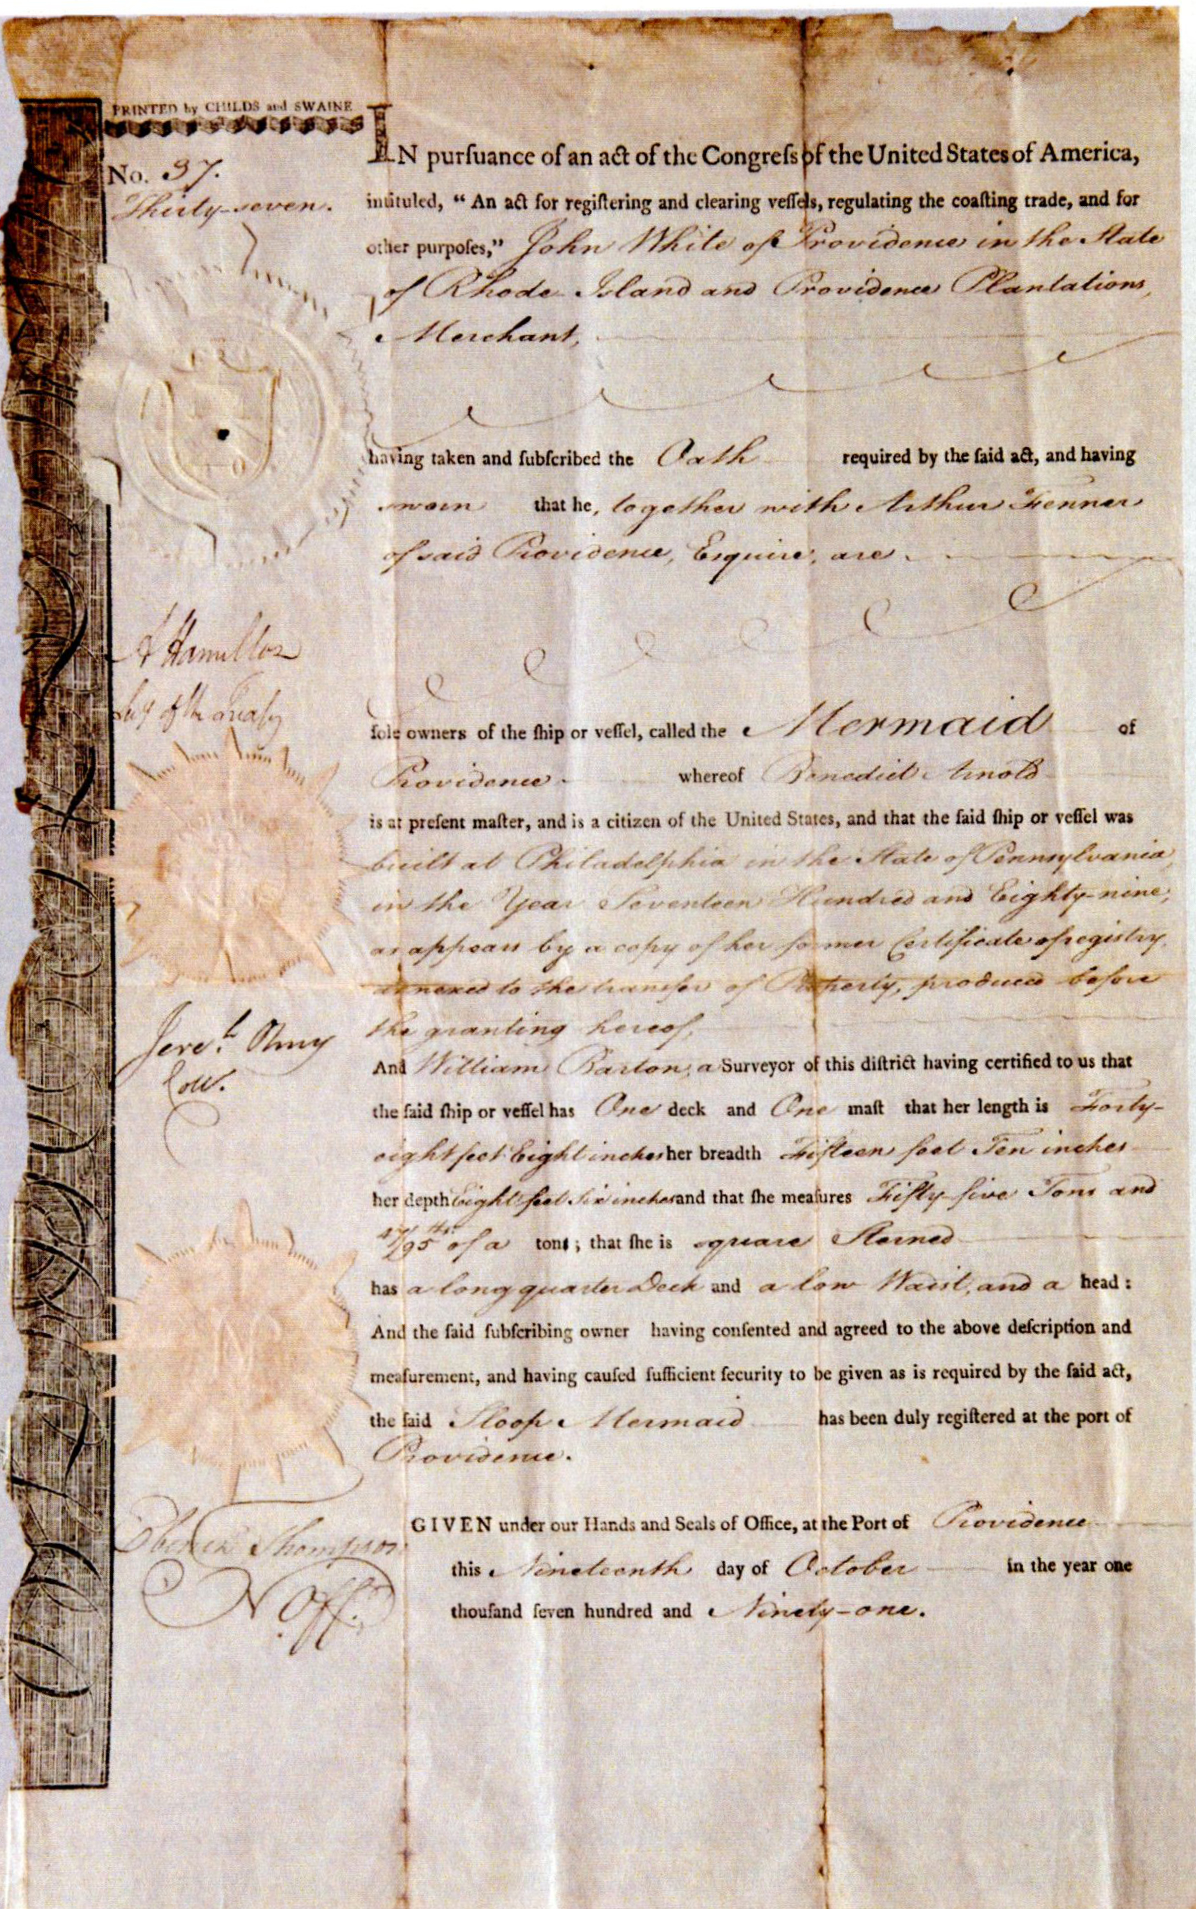 PRINTED by CHILDS and SWAINE
No. 37.
Thirty-seven.
IN purſuance of an act of the Congreſs of the United States of America,
intituled, “ An act for regiſtering and clearing veſſels, regulating the coaſting trade, and for
other purpoſes,” John White of Providence in the State
of Rhode Island and Providence Plantations,
Merchant,
having taken and ſubſcribed the Oath required by the ſaid act, and having
sworn that he, together with Arthur Fenner
of said Providence, Esquire, are
ſole owners of the ſhip or veſſel, called the Mermaid of
Providence whereof Benedict Arnold
is at preſent maſter, and is a citizen of the United States, and that the ſaid ſhip or veſſel was
built at Philadelphia in the State of Pennsylvania,
in the Year Seventeen Hundred and Eighty-nine;
as appears by a copy of her former Certificate of registry,
annexed to the transfer of Property, produced before
the granting hereof.
And William Barton, a Surveyor of this diſtrict having certified to us that
the ſaid ſhip or veſſel has One deck and One maſt that her length is Forty-
eight feet Eight inches her breadth Fifteen feet Ten inches
her depth Eight feet Six inches and that ſhe meaſures Fifty five Tons and
/95ths of a tons ; that ſhe is square Sterned
has a long quarter Deck and a low Waist, and a head :
And the ſaid ſubſcribing owner having conſented and agreed to the above deſcription and
meaſurement, and having cauſed ſufficient ſecurity to be given as is required by the ſaid act,
the ſaid Sloop Mermaid has been duly regiſtered at the port of
Providence.
GIVEN under our Hands and Seals of Office, at the Port of Providence
this Nineteenth day of October in the year one
thouſand ſeven hundred and Ninety-one.
A Hamilton
Secy of the Treasy
Jere.h Olney
Coll.
Ebenezr Thompson
N. Off.